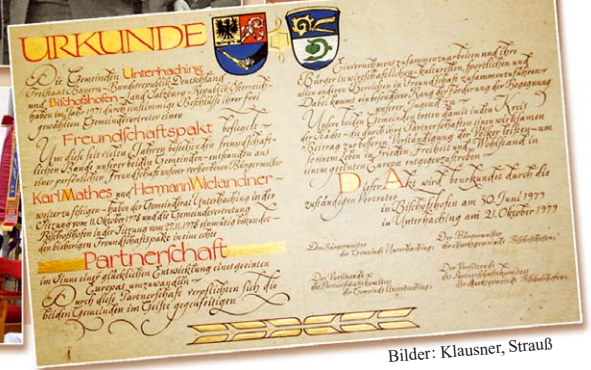 URKUNDE
Die Gemeinden Unterhaching
Freistaat Bayern – Bundesrepublik Deutschland
und Bischofshofen Land Salzburg – Republik Österreich –
haben im Jahr 1971 durch einstimmige Beschlüsse ihrer frei
gewählten Gemeindevertreter einen
Freundschaftspakt besiegelt –
Um diese seit vielen Jahren bestehenden freundschaft-
lichen Bande unserer beiden Gemeinden – entstanden aus
einer persönlichen Freundschaft unserer verstorbenen Bürgermeister
Karl Mathes und Hermann Wielandner –
weiter zu festigen – haben der Gemeinderat Unterhaching in der
Sitzung vom 11. Oktober 1978 und die Gemeindevertretung
Bischofshofen in der Sitzung vom 28.11.1978 einmütig bekundet –
den bisherigen Freundschaftspakt in eine echte
Partnerschaft
im Sinne einer glücklichen Entwicklung eines geeinten
Europas umzuwandeln –
Durch diese Partnerschaft verpflichten sich die
beiden Gemeinden im Geiste gegenseitigen
Einvernehmens zusammenzuarbeiten und ihre
Bürger in wirtschaftlichen – kulturellen – sportlichen und
allen anderen Bereichen in Freundschaft zusammenzuführen –
Dabei kommt ein besonderer Rang der Förderung der Begegnung
unserer Jugend zu –
Unsere beiden Gemeinden treten damit in den Kreis
der Städte – die durch ihre Partnerschaften einen wirksamen
Beitrag zur besseren Verständigung der Völker leisten – um
so einem Leben in Frieden – Freiheit und Wohlstand in
einem geeinten Europa entgegenzustreben
Dieser Akt wird beurkundet durch die
zuständigen Vertreter
in Bischofshofen am 30. Juni 1979
in Unterhaching am 21. Oktober 1979
Der Bürgermeister
der Gemeinde Unterhaching:
Der Bürgermeister
der Marktgemeinde Bischofshofen:
Der Vorsitzende
des Partnerschaftskomitees
der Gemeinde Unterhaching:
Der Vorsitzende
des Partnerschaftskomitees
der Marktgemeinde Bischofshofen:
Bilder: Klausner, Strauß